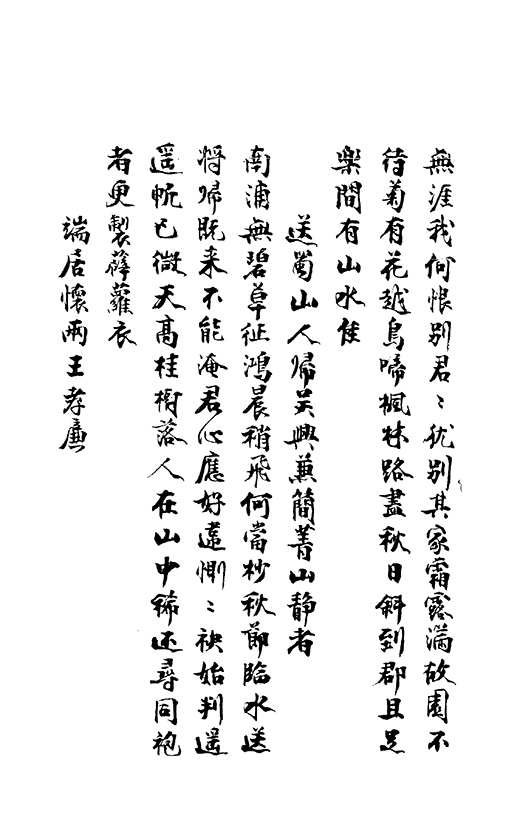 無涯我何恨別君〻猶別其家霜露滿故園不
待菊有花越鳥啼楓林路盡秋日斜到郡且足
樂間有山水佳
送蜀山人歸吳興兼簡菁山靜者
南浦無碧草征鴻晨稍飛何當杪秋節臨水送
將歸既来不能淹君心應好違惻〻袂始判遥
遥帆已微天高桂樹落人在山中稀还尋同袍
者更製薜蘿衣
端居懷兩王孝廉